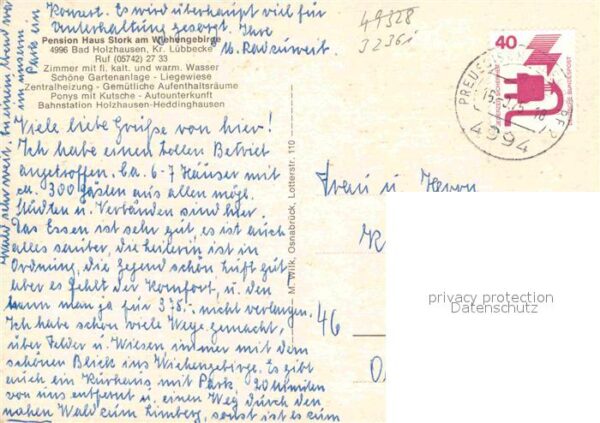 Konzert. Es wird überhaupt viel für
Unterhaltung gesorgt. Ihre
M. Radzuweit.
Pension Haus Stork am Wiehengebirge
4996 Bad Holzhausen, Kr. Lübbecke
Ruf (05742) 27 33
Zimmer mit fl. kalt. und warm. Wasser
Schöne Gartenanlage - Liegewiese
Zentralheizung - Gemütliche Aufenthaltsräume
Ponys mit Kutsche - Autounterkunft
Bahnstation Holzhausen-Heddinghausen
Viele liebe Grüße von hier!
Ich habe einen tollen Betrieb
angetroffen. Ca. 6-7 Häuser mit
ca. 300 Gästen aus allen mögl.
Städten u. Verbänden sind hier.
Das Essen ist sehr gut, es ist auch
alles sauber, die Leiterin ist in
Ordnung, die Gegend schön Luft gut
aber es fehlt der Komfort, u. den
kann man ja für 378.- nicht verlangen.
Ich habe schon viele Wege gemacht,
über Felder u. Wiesen immer mit dem
schönen Blick ins Wiehengebirge. Es gibt
auch ein Kurhaus mit Park, 20 Minuten
von uns entfernt u. einen Weg durch den
nahen Wald zum Limberg, sonst ist es zum
Wald sehr weit. In einem Abend war
in unserm
Park ein
M. Wilk, Osnabrück, Lotterstr. 110
49328
3236i
40
DEUTSCHE BUNDESPOST
4994
Frau u. Herrn
K
46
privacy protection
Datenschutz